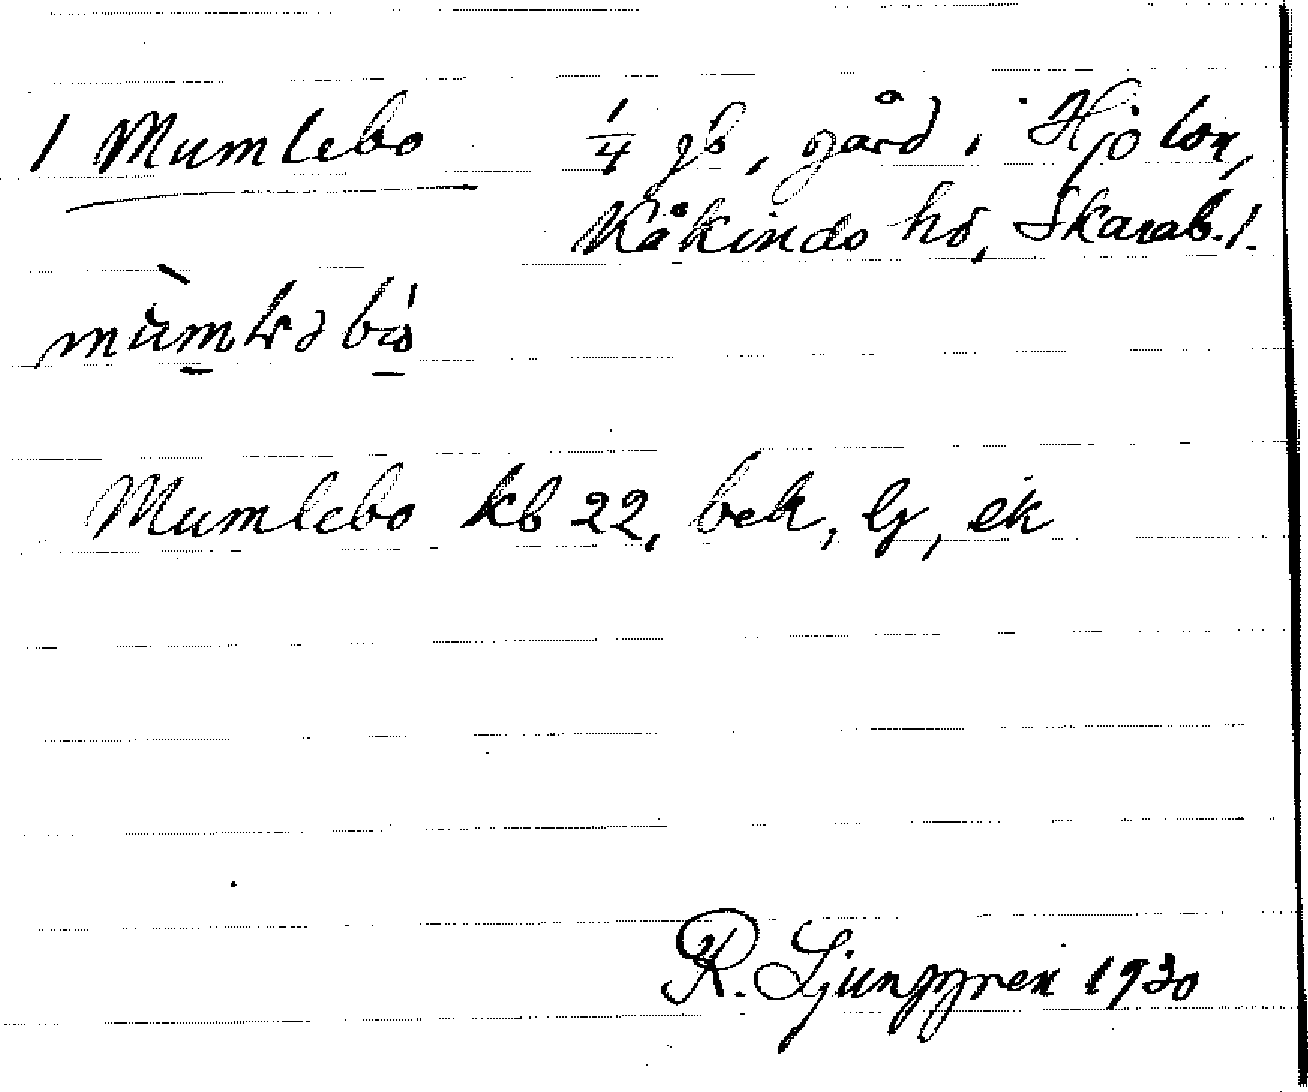 1 Mumlebo 1/4 gb, gård i Hjo lsn,
Kåkinds hd, Skarab. l.
Mumlebo kb 22, bek, lj, ek
R. Ljunggren 1930